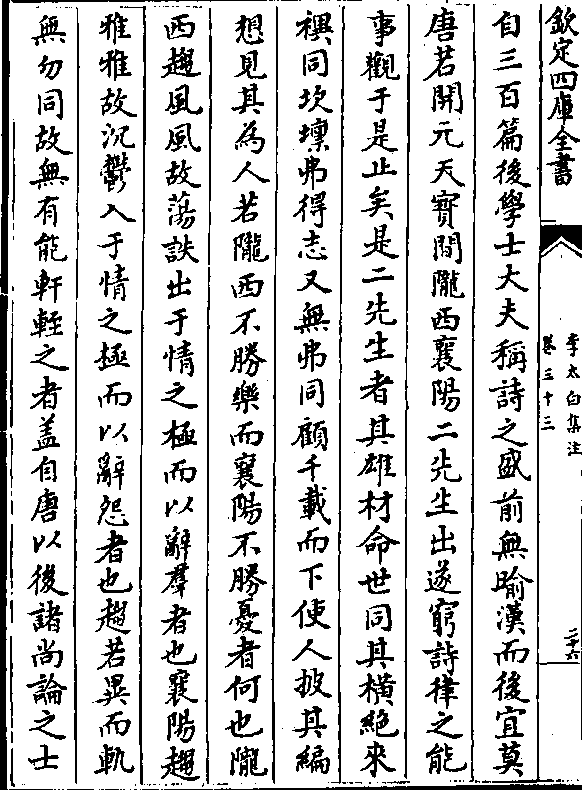 欽定四庫全書
李太白集注
卷三十三
二六
自三百篇後學士大夫稱詩之盛前無踰漢而後宜莫
唐若開元天寳間隴西襄陽二先生出遂窮詩律之能
事觀于是止矣是二先生者其雄材命世同其橫絶來
禩同坎壈弗得志又無弗同顧千載而下使人披其編
想見其為人若隴西不勝樂而襄陽不勝憂者何也隴
西趨風風故蕩詄出于情之極而以辭羣者也襄陽趨
雅雅故沉鬱入于情之極而以辭怨者也趨若異而軌
無勿同故無有能軒輊之者蓋自唐以後諸尚論之士